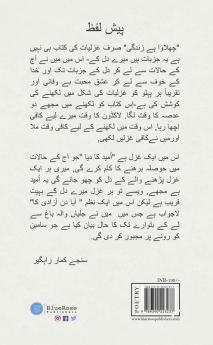 پیش لفظ
"چھلاوا ہے زندگی" صرف غزلیات کی کتاب ہی نہیں
ہے یہ جزبات ہیں میرے دل کے۔ اس میں میں نے آج
کے حالات سے لے کر دل کے جزبات تک اور خدا
کے خوف سے لے کر عشق محبت بے وفائی اور
تقریباً ہر پہلو کو غزلیات کی شکل میں لکھنے کی
کوشش کی ہے۔ اس کتاب کو لکھنے میں مجھے دو
عدصہ کا وقت لگا۔ لاکڈون کا وقت میرے لیے کافی
اچھا رہا۔ اس وقت میں لکھنے کے لیے کافی وقت ملا
اور میں نے کافی غزلیں لکھیں۔
اس میں ایک غزل ہے "اُمید کا دیا" جو آج کے حالات
میں حوصلہ بڑھنے کا کام کرے گی۔ میری ہر ایک
غزل پڑھنے والے کے دل کو چھو جائے گی یہ اُمید
ہے مجھے۔ ویسے تو ہر غزل میرے دل کے بہت
قریب ہے لیکن اس میں ایک نظم " آیا دن آزادی کا"
لاجواب ہے جس میں میں نے جلیاں والہ باغ سے
لے کے بٹوارے تک کا حال بیان کیا ہے جو سامین
کو رونے پر مجبور کر دی گی۔
سنجے کمار راہگیر
INR-190/-
POETRY
BLUEROSE
Publishers
www.bluerosepublishers.com